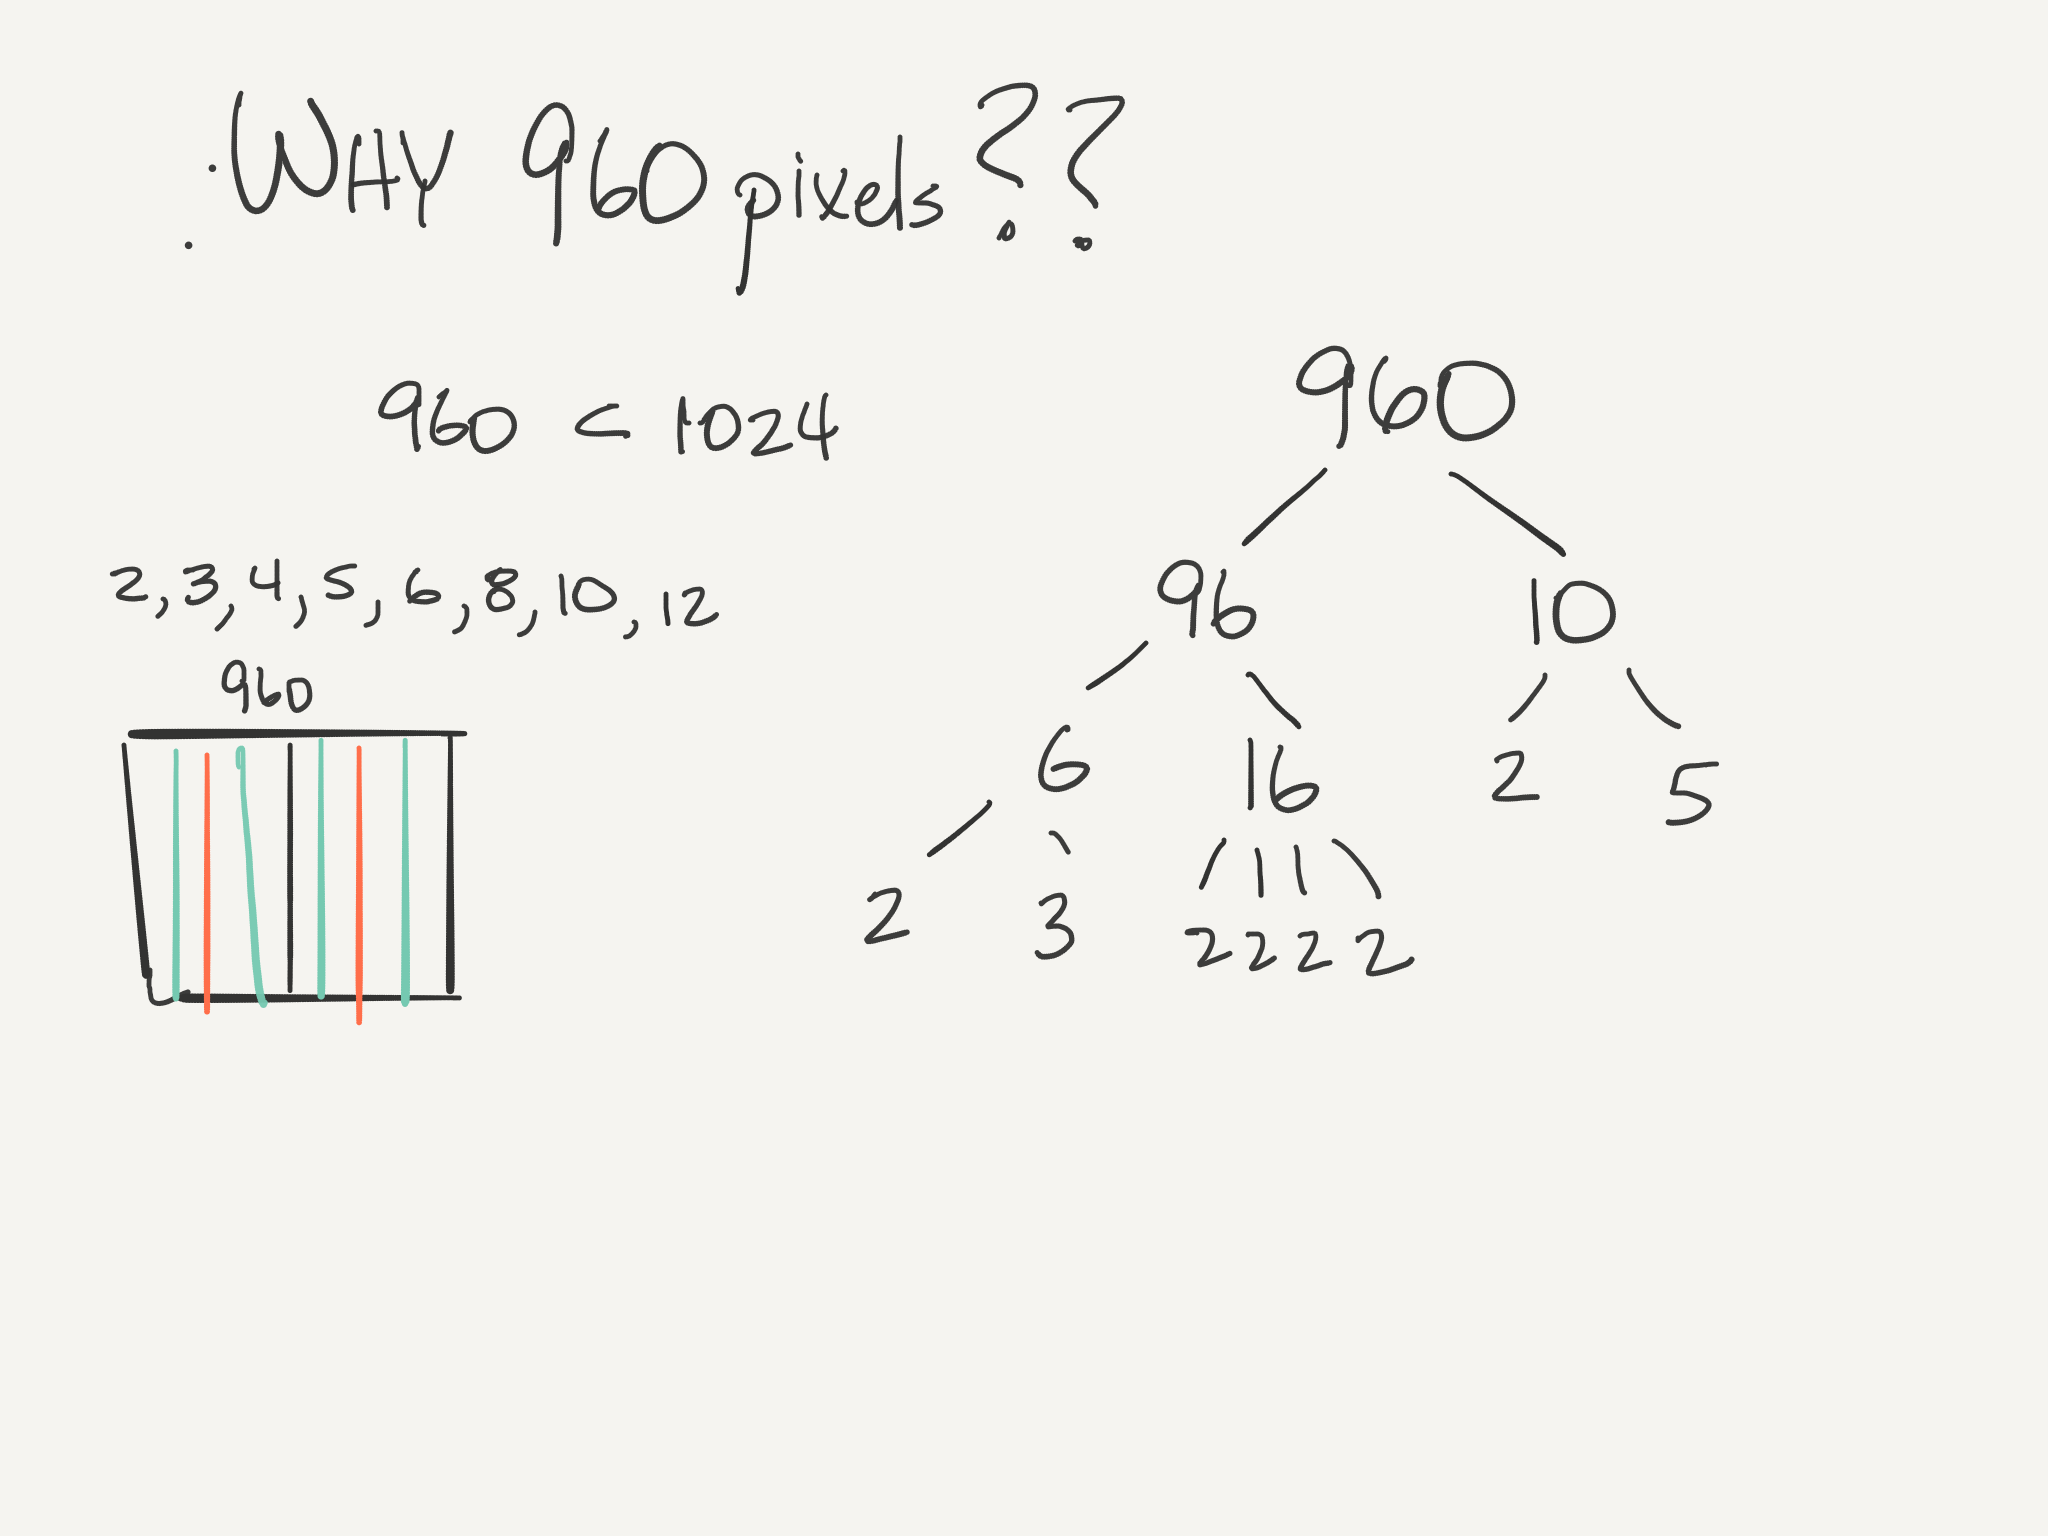 WHY 960 pixels ??
960 < 1024
2, 3, 4, 5, 6, 8, 10, 12
960
960
96 10
6 16 2 5
2 3 2 2 2 2